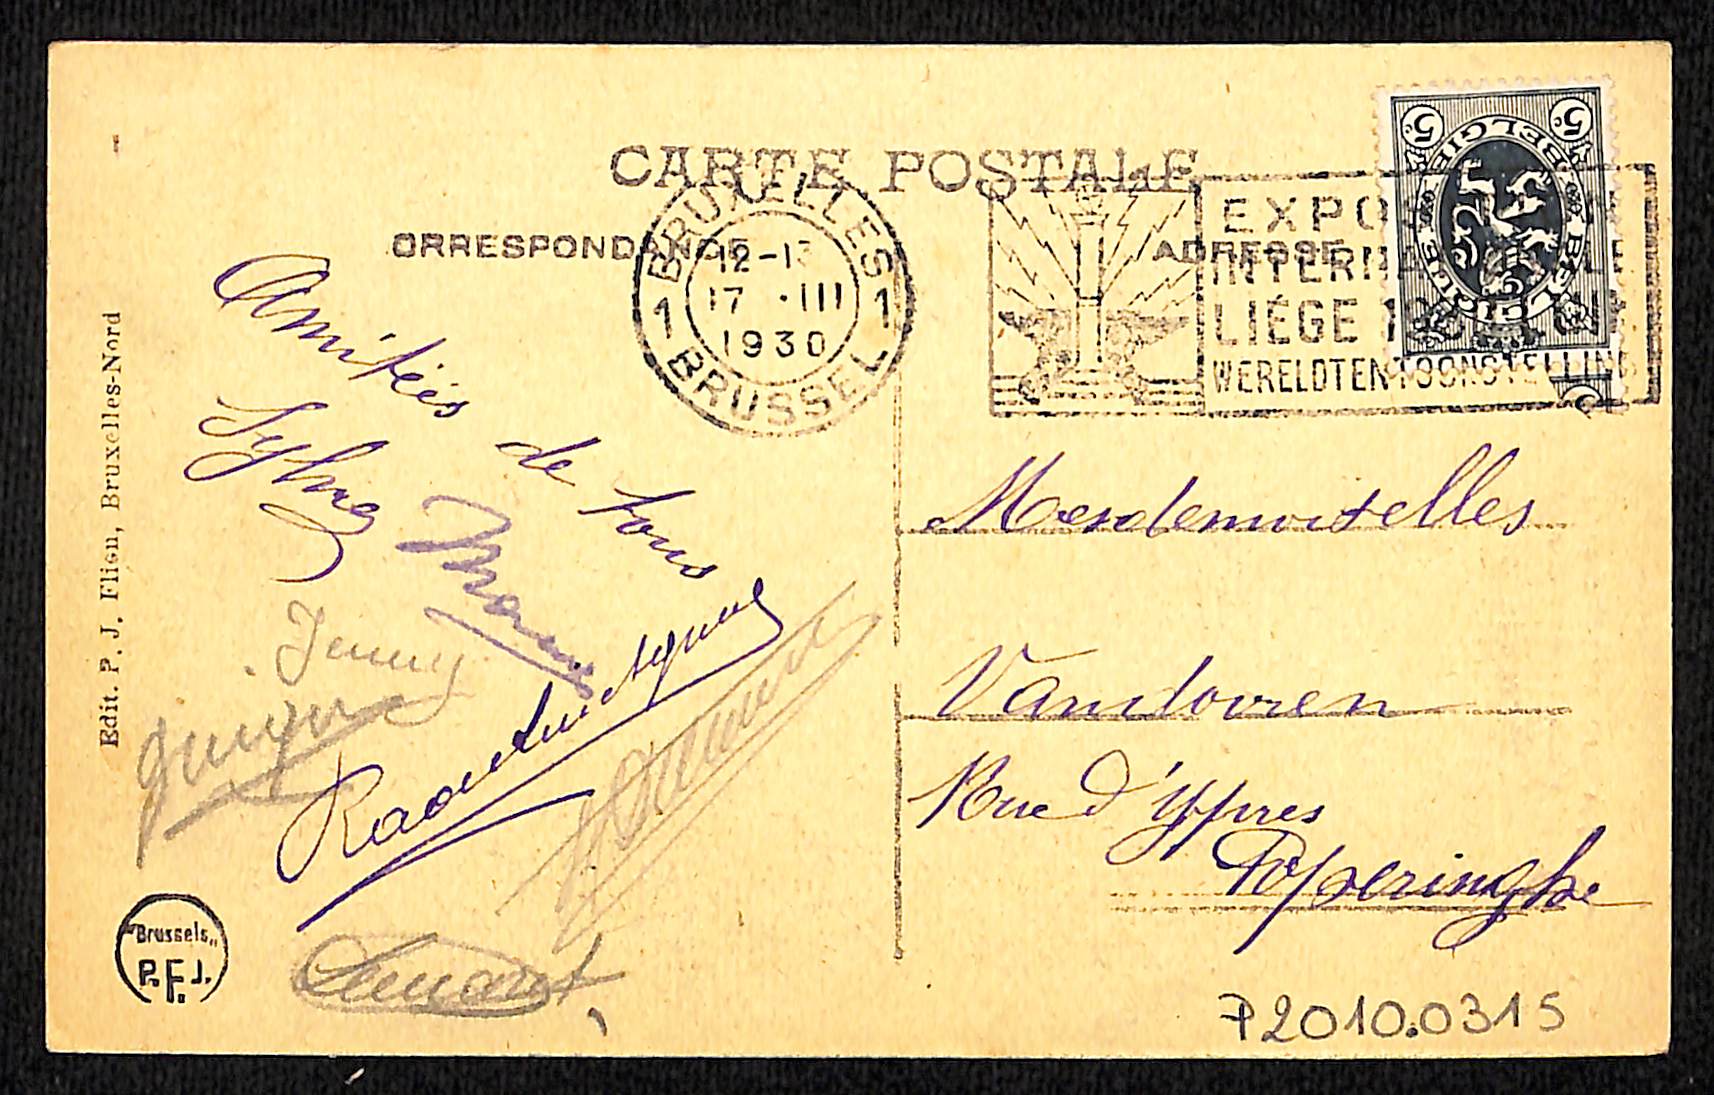 CARTE POSTALE
ORRESPONDANCE
ADRESSE
BRUXELLES
1 12-13 1
17 .III
1930
BRUSSEL
EXPO
INTERN
LIÉGE 1930
WERELDTENTOONSTELLING
5c 5c
BELGIQUE BELGIË
Amitiés de tous
Sylva
Jenny
Mesdemoiselles
Vandoren
Rue d'Ypres
Poperinghe
Edit. P. J. Flion, Bruxelles-Nord
"Brussels„
P.F.J.
P2010.0315